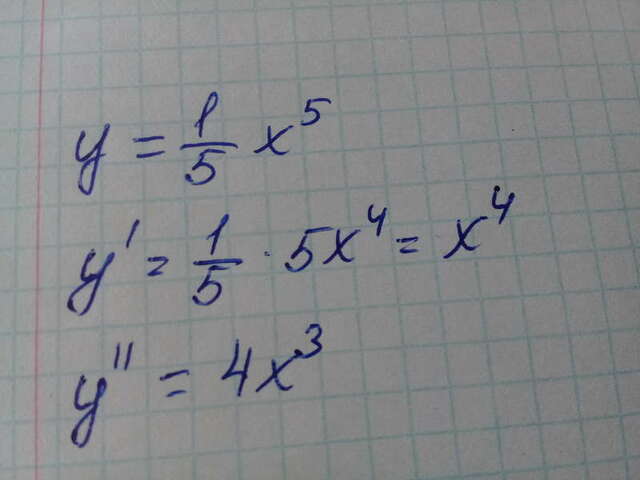 y = 1/5 x⁵
y' = 1/5 · 5x⁴ = x⁴
y'' = 4x³